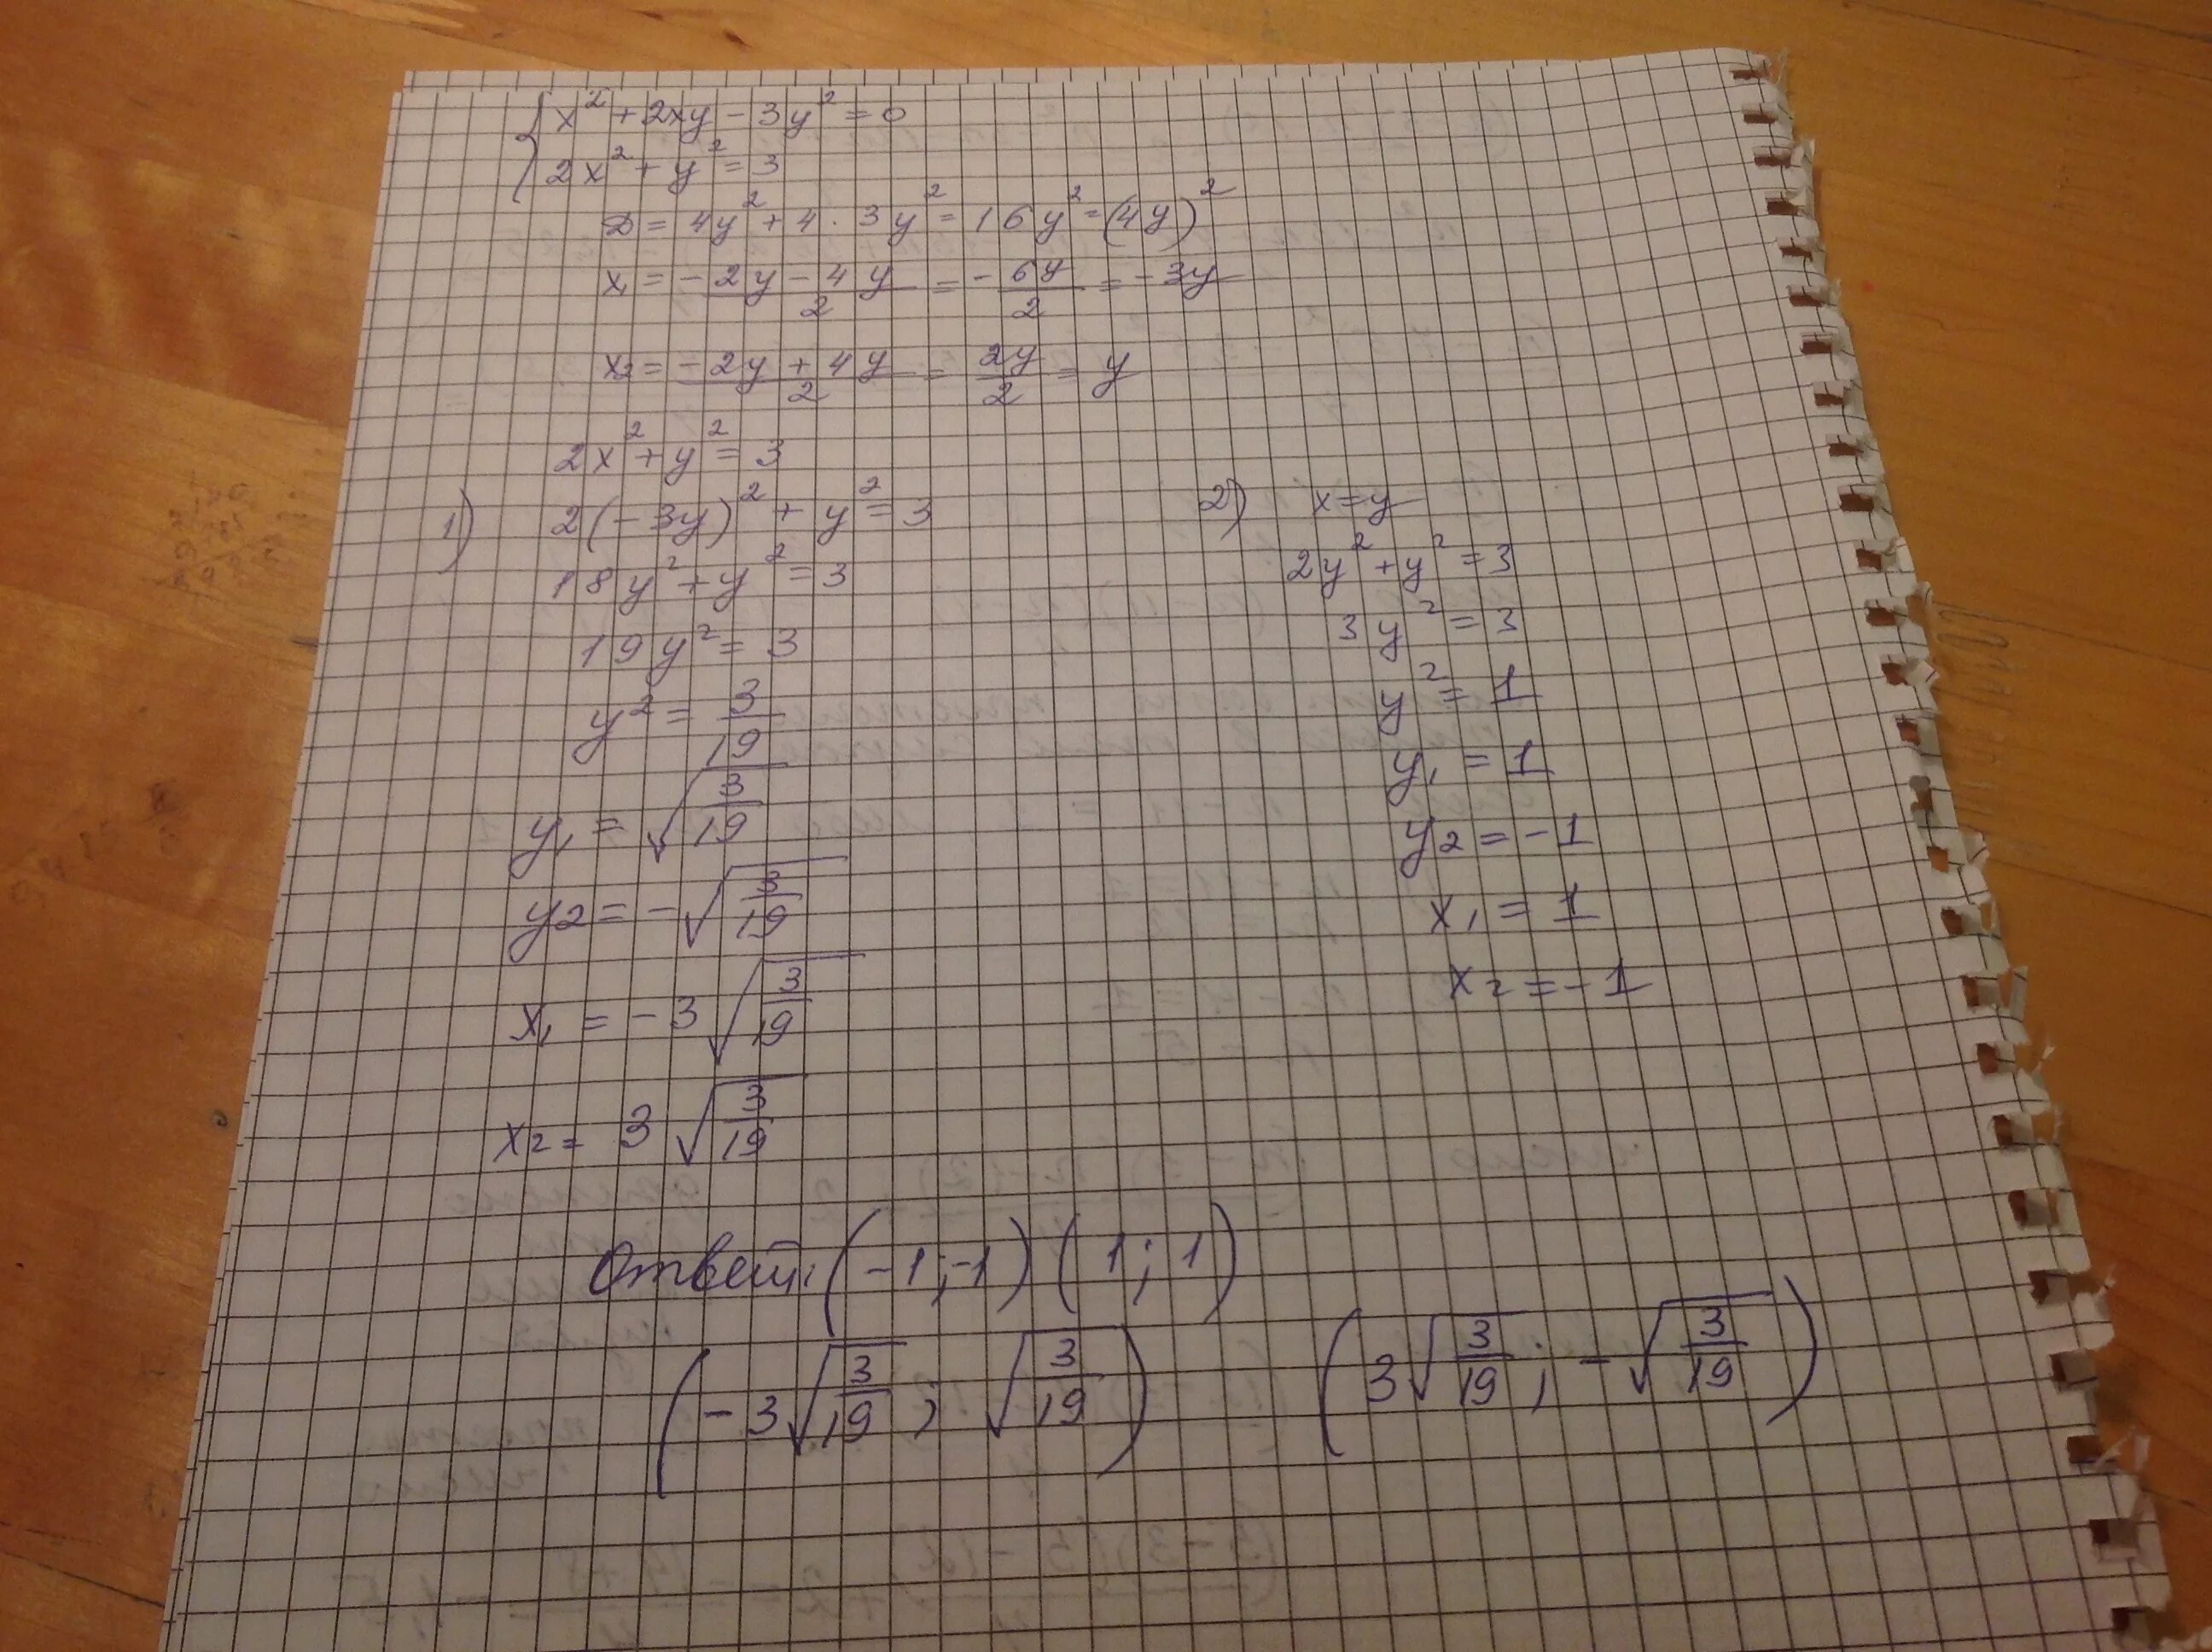 { x² + 2xy - 3y² = 0
2x² + y² = 3
D = 4y² + 4 · 3y² = 16y² = (4y)²
x₁ = (-2y - 4y)/2 = -6y/2 = -3y
x₂ = (-2y + 4y)/2 = 2y/2 = y
2x² + y² = 3
1) 2(-3y)² + y² = 3
18y² + y² = 3
19y² = 3
y² = 3/19
y₁ = √(3/19)
y₂ = -√(3/19)
x₁ = -3√(3/19)
x₂ = 3√(3/19)
2) x = y
2y² + y² = 3
3y² = 3
y² = 1
y₁ = 1
y₂ = -1
x₁ = 1
x₂ = -1
Ответ: (-1; -1) (1; 1)
(-3√(3/19); √(3/19)) (3√(3/19); -√(3/19))